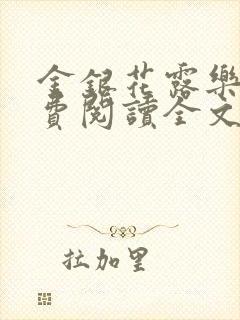 金銀花露樂
費閱讀全文
拉加里